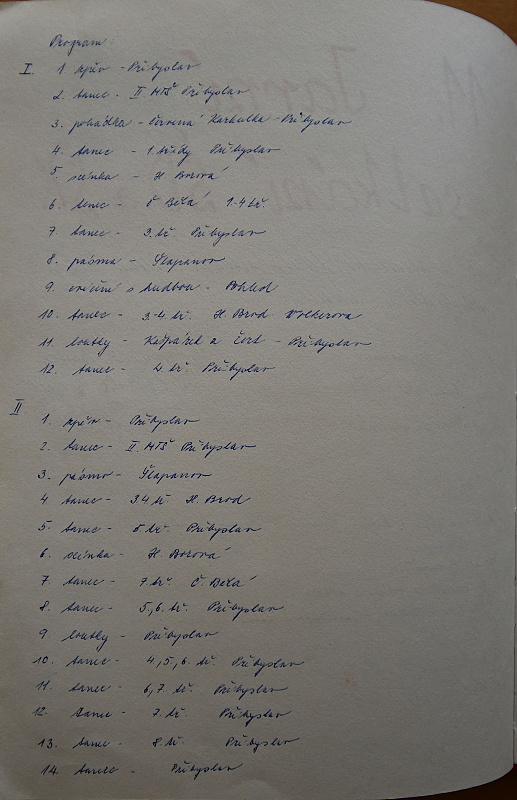 Program:
I. 1. zpěv - Přibyslav
2. tanec - II. MŠ Přibyslav
3. pohádka - Červená Karkulka - Přibyslav
4. tanec - 1. třídy Přibyslav
5. scénka - H. Borová
6. tanec - Č. Bělá 1.-4. tř.
7. tanec - 3. tř. Přibyslav
8. pásmo - Šlapanov
9. cvičení s hudbou - Pohled
10. tanec - 3.-4. tř. H. Brod Wolkerova
11. loutky - Kašpárek a čert - Přibyslav
12. tanec - 4. tř. Přibyslav
II 1. zpěv - Přibyslav
2. tanec - II. MŠ Přibyslav
3. pásmo - Šlapanov
4. tanec - 3 4 tř. H. Brod
5. tanec - 5 tř. Přibyslav
6. scénka - H. Borová
7. tanec - 7. tř. Č. Bělá
8. tanec - 5., 6. tř. Přibyslav
9. loutky - Přibyslav
10. tanec - 4., 5., 6. tř. Přibyslav
11. tanec - 6., 7. tř. Přibyslav
12. tanec - 7. tř. Přibyslav
13. tanec - 8. tř. Přibyslav
14. tanec - Přibyslav